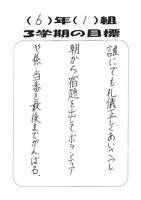 (6)年(1)組
3学期の目標
誰にでも礼儀正しくあいさつし、
朝から宿題を出して、ボランティア
や係、当番を最後までがんばる。